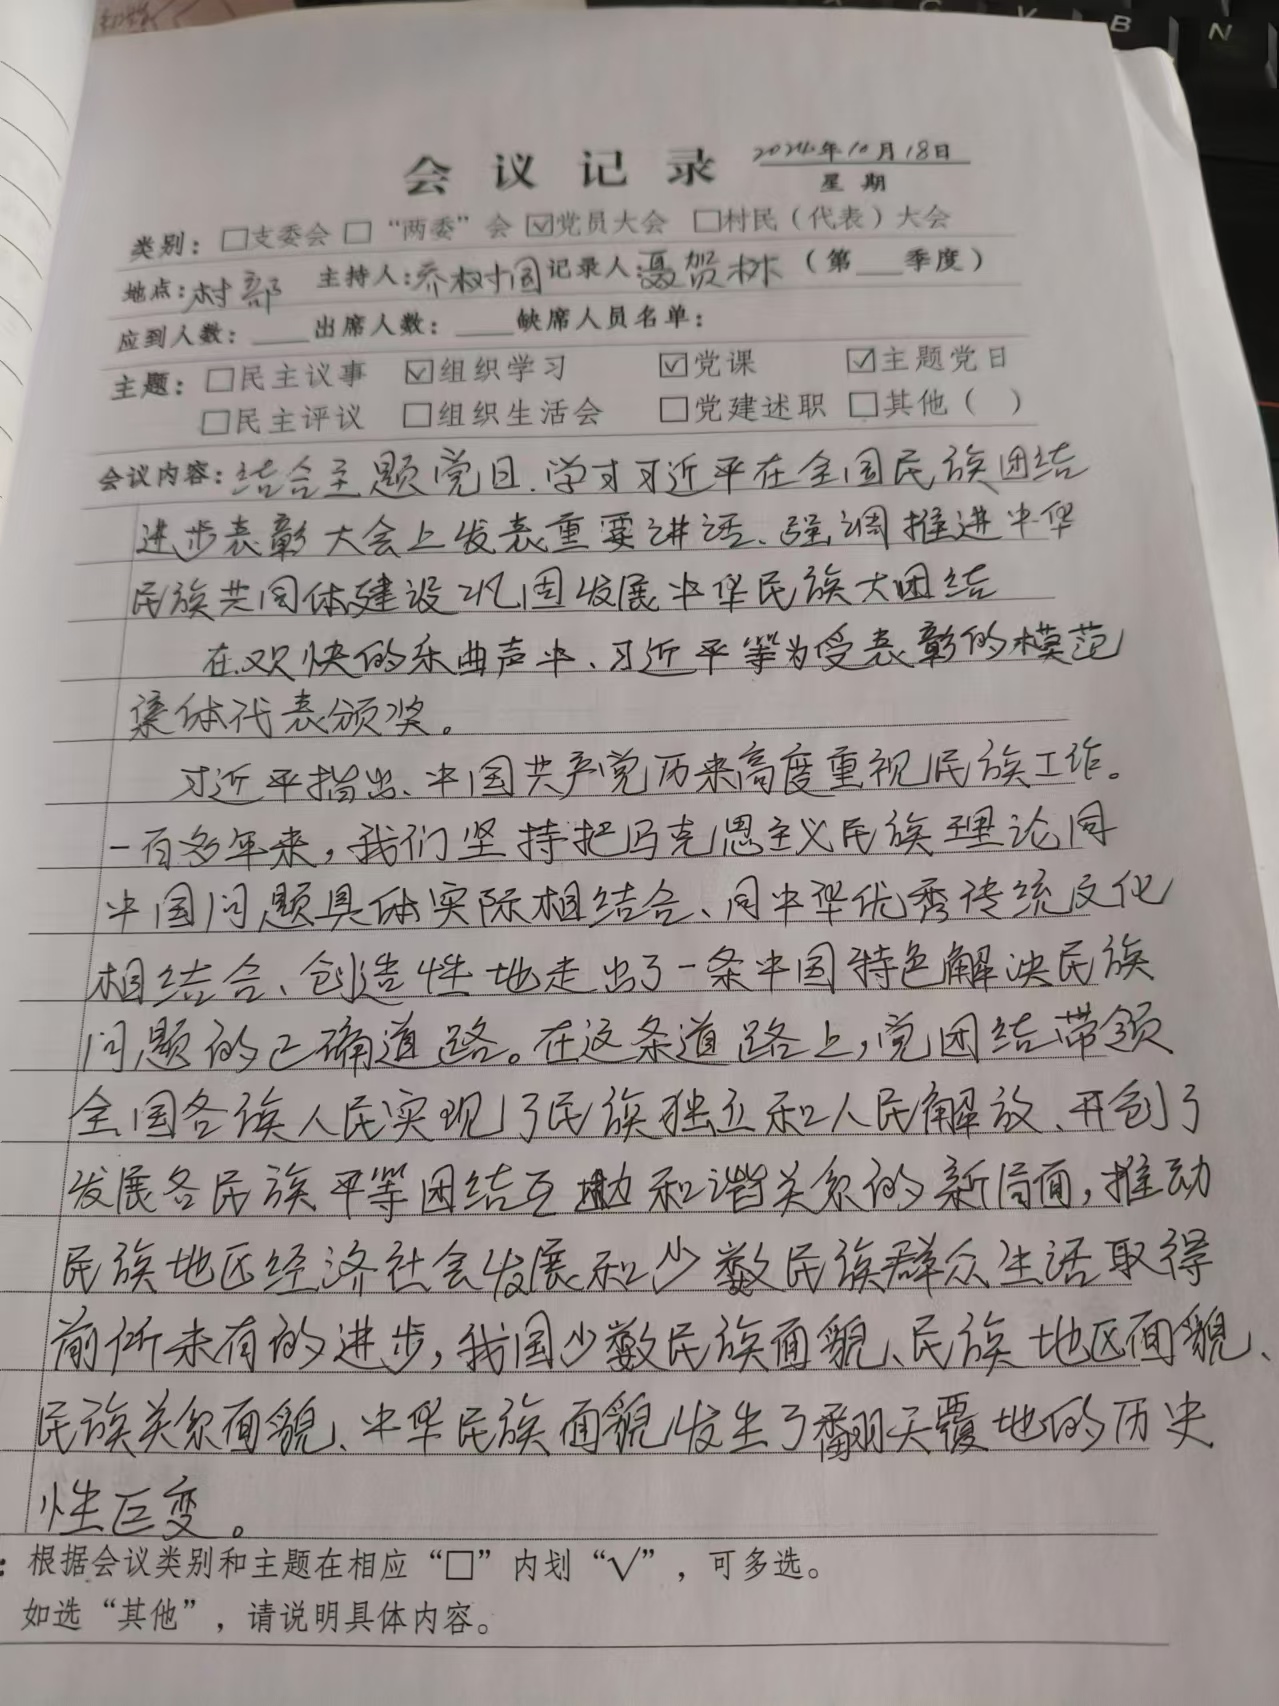 会议记录 2024年10月18日
星期
类别：□支委会 □“两委”会 ☑党员大会 □村民（代表）大会
地点：村部 主持人：乔树国 记录人：聂贺林（第___季度）
应到人数：____出席人数：____缺席人员名单：
主题：□民主议事 ☑组织学习 ☑党课 ☑主题党日
□民主评议 □组织生活会 □党建述职 □其他（ ）
会议内容：结合主题党日、学习习近平在全国民族团结
进步表彰大会上发表重要讲话、强调推进中华
民族共同体建设巩固发展中华民族大团结
在欢快的乐曲声中、习近平等为受表彰的模范
集体代表颁奖。
习近平指出、中国共产党历来高度重视民族工作。
一百多年来，我们坚持把马克思主义民族理论同
中国问题具体实际相结合、同中华优秀传统文化
相结合、创造性地走出了一条中国特色解决民族
问题的正确道路。在这条道路上，党团结带领
全国各族人民实现了民族独立和人民解放、开创了
发展各民族平等团结互助和谐关系的新局面，推动
民族地区经济社会发展和少数民族群众生活取得
前所未有的进步，我国少数民族面貌、民族地区面貌、
民族关系面貌、中华民族面貌发生了翻天覆地的历史
性巨变。
：根据会议类别和主题在相应“□”内划“√”，可多选。
如选“其他”，请说明具体内容。
B
N